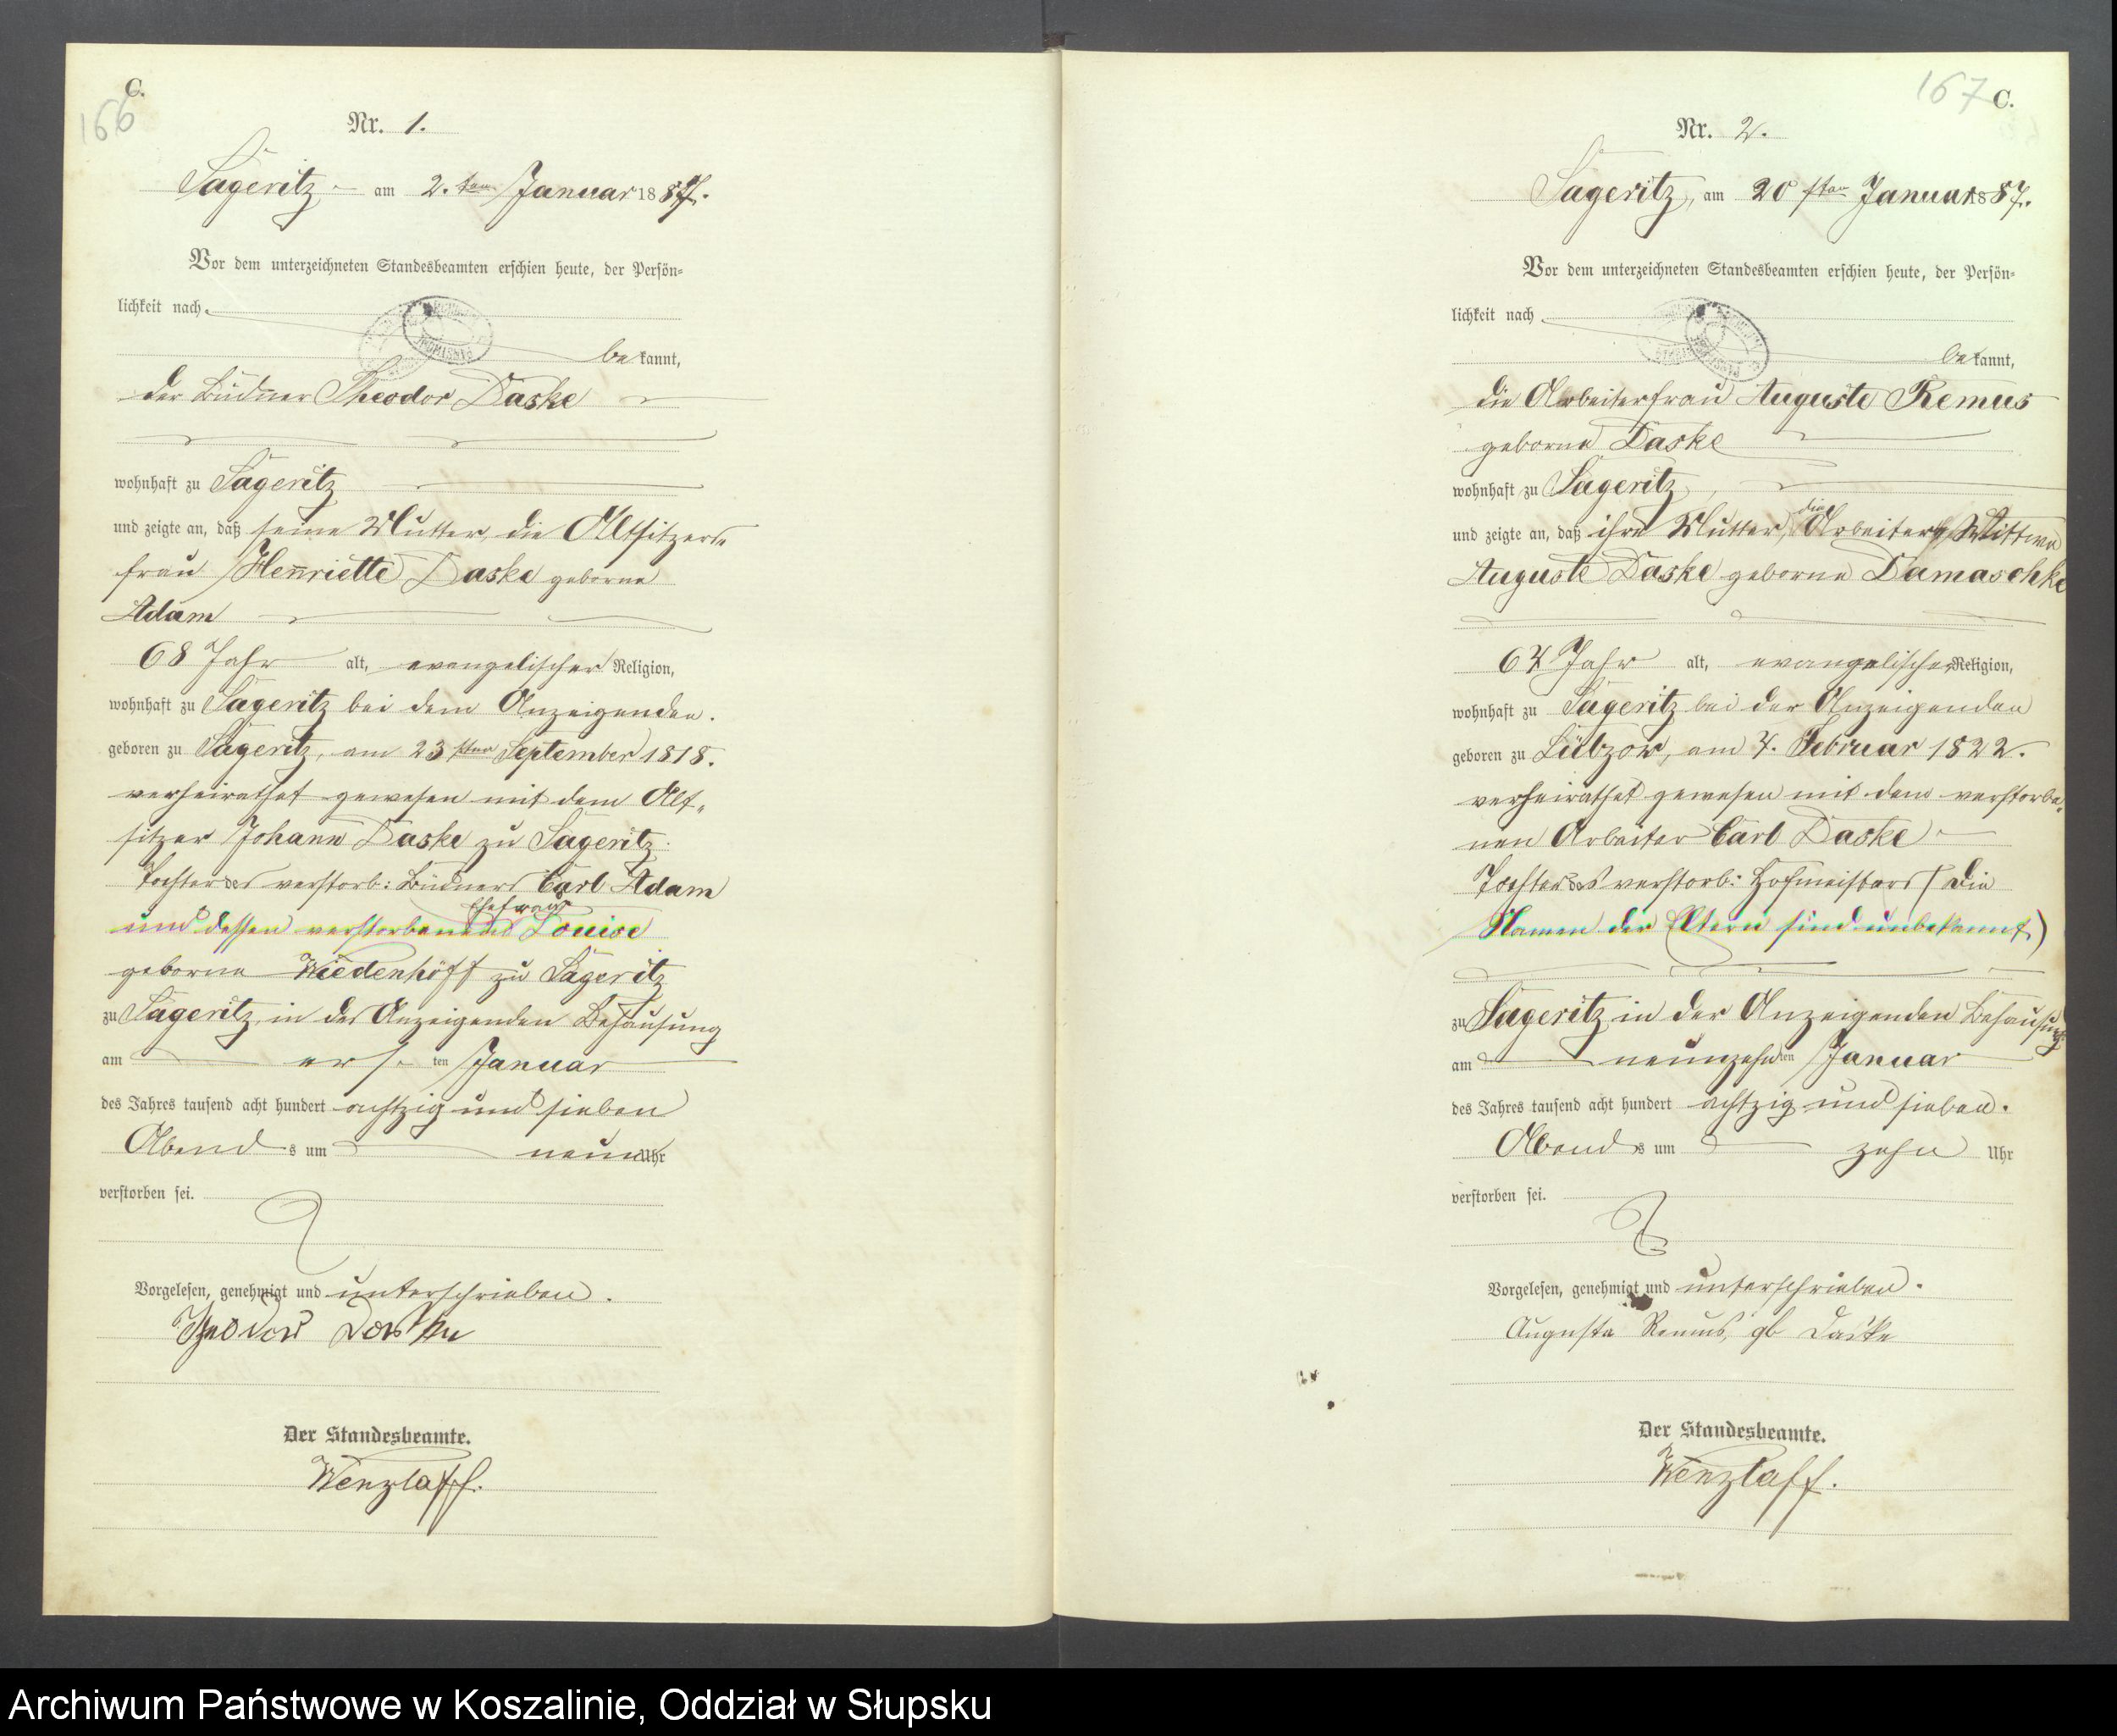 C.
166
Nr. 1.
Sageritz am 2. ten Januar 1887.
Vor dem unterzeichneten Standesbeamten erschien heute, der Persön=
lichkeit nach
bekannt,
der Büdner Theodor Daske
wohnhaft zu Sageritz
und zeigte an, daß seine Mutter, die Altsitzer=
frau Henriette Daske geborne
Adam
68 Jahr alt, evangelischer Religion,
wohnhaft zu Sageritz bei dem Anzeigenden.
geboren zu Sageritz, am 23sten September 1818.
verheirathet gewesen mit dem Alt=
sitzer Johann Daske zu Sageritz.
Tochter des verstorb: Büdners Carl Adam
Ehefrau
und dessen verstorbenen Louise
geborne Wiedenhöft zu Sageritz
zu Sageritz, in des Anzeigenden Behausung
am ers ten Januar
des Jahres tausend acht hundert achtzig und sieben
Abend s um neun Uhr
verstorben sei.
Vorgelesen, genehmigt und unterschrieben.
Theodor Daske
Der Standesbeamte.
Wenzlaff.
167 C.
Nr. 2.
Sageritz, am 20 sten Januar 1887.
Vor dem unterzeichneten Standesbeamten erschien heute, der Persön=
lichkeit nach
bekannt,
die Arbeiterfrau Auguste Remus
geborne Daske
wohnhaft zu Sageritz,
die
und zeigte an, daß ihre Mutter, Arbeiter Wittwe
Auguste Daske geborne Damaschke
64 Jahr alt, evangelischer Religion,
wohnhaft zu Sageritz bei der Anzeigenden
geboren zu Lübzow, am 4. Februar 1822.
verheirathet gewesen mit dem verstorbe=
nen Arbeiter Carl Daske
Tochter des verstorb: Hofmeisters (Die
Namen der Eltern sind unbekannt.)
zu Sageritz in der Anzeigenden Behausung
am neunzehn ten Januar
des Jahres tausend acht hundert achtzig und sieben.
Abend s um zehn Uhr
verstorben sei.
Vorgelesen, genehmigt und unterschrieben.
Auguste Remus, gb Daske
Der Standesbeamte.
Wenzlaff.
Archiwum Państwowe w Koszalinie, Oddział w Słupsku